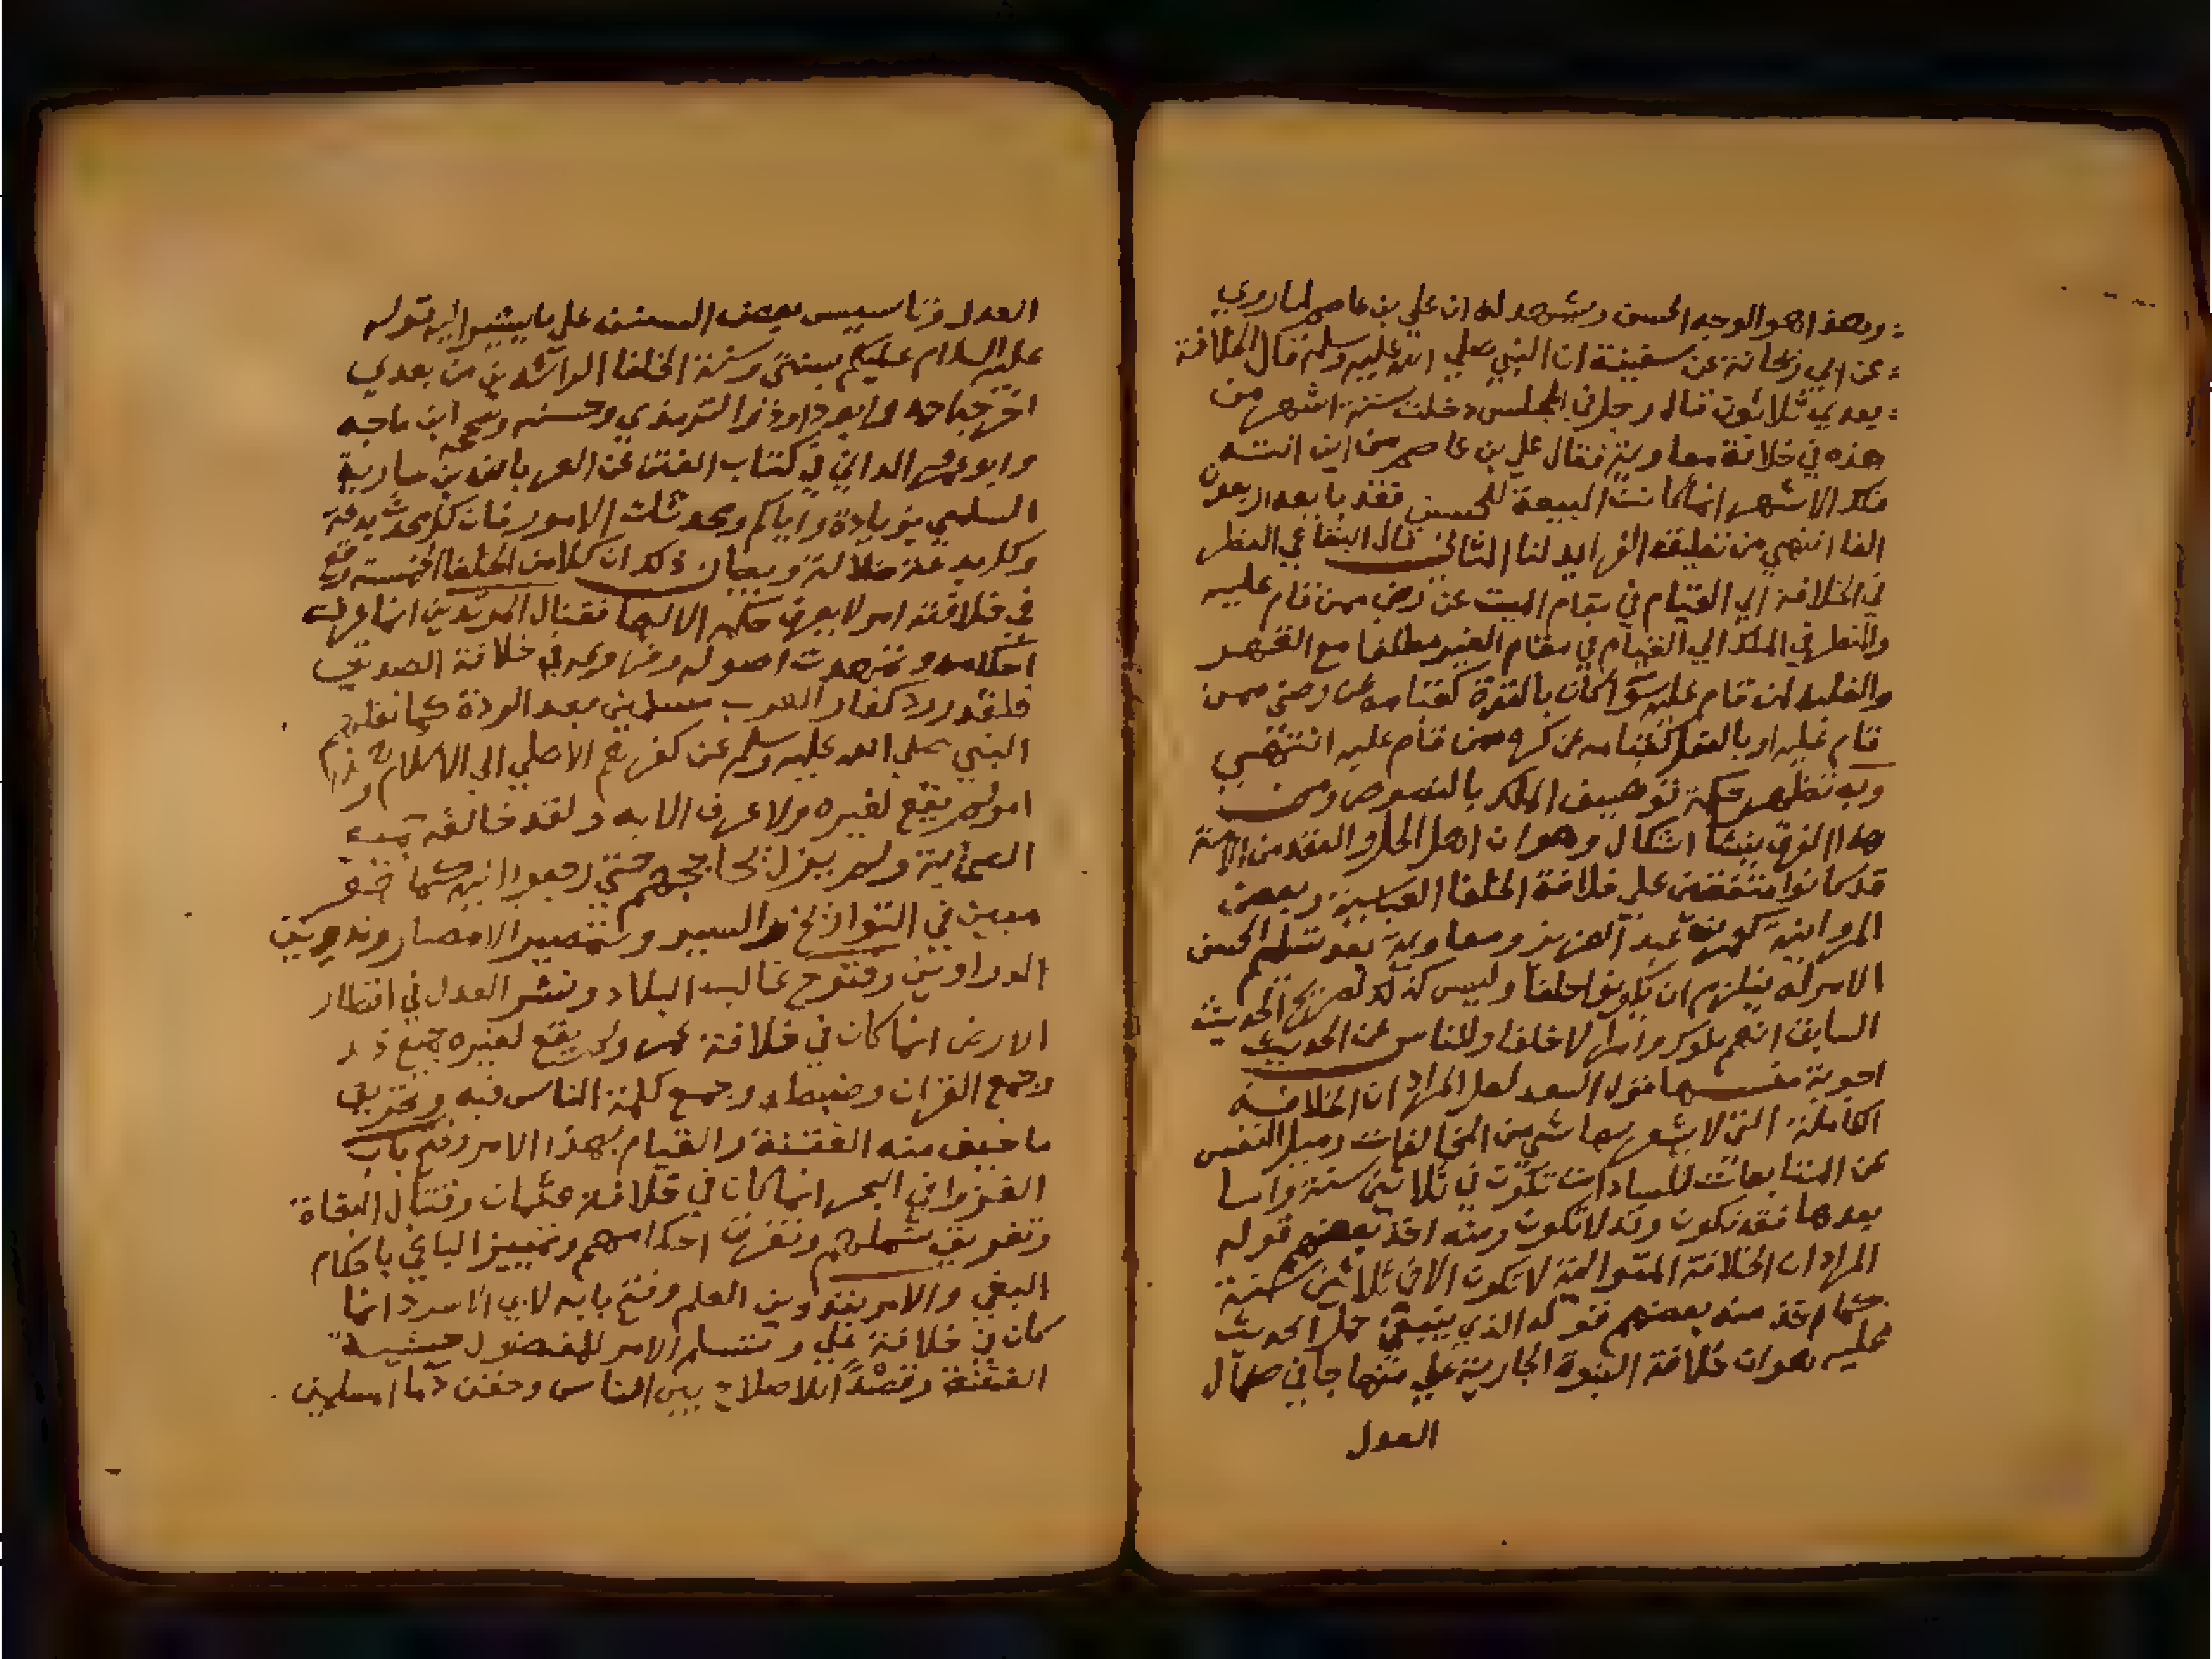 وهذا هو الوجه الحسن ويشهد له ان علي بن عاصم لما روي
عن ابي ريحانة عن سفينة ان النبي صلي الله عليه وسلم قال الخلافة
بعدي ثلاثون قال رجل في المجلس دخلت ستة اشهر من
هذه في خلافة معاوية فقال علي بن عاصم من اين اتته
تلك الاشهر انما كانت البيعة للحسن فقد بايعه اربعون
الفا انتهي من تعليقه الفرايد لنا الثاني قال البقاعي النظر
في الخلافة الي القيام في مقام الميت عن رضي ممن قام عليه
والنظر في الملك الي القيام في مقام الغير مطلقا مع القهر
والغلبة لمن قام عليه سوا كان بالقوة كقيامه عن رضي ممن
قام عليه او بالفعل كقيامه عن كره ممن قام عليه انتهي
وبه تظهر حكمة توصيف الملك بالنصوص ومن
هذا الفرق ينشا اشكال وهو ان اهل الحل والعقد من الامة
قد كانوا متفقين علي خلافة الخلفا العباسية وبعض
المروانية كعمر بن عبد العزيز ومعاوية بعد تسليم الحسن
الامر له فيلزم ان يكونوا خلفا وليس كذلك لصريح الحديث
السابق انهم ملوك وامرا لا خلفا وللناس عن الحديث
اجوبة منها قول السعد لعل المراد ان الخلافة
الكاملة التي لا يشعر بها شي من المخالفات وميل النفس
عن المتابعات للسادات تكون في ثلاثين سنة واما
بعدها فقد تكون وقد لا تكون ومنه اخذ بعضهم قوله
المراد ان الخلافة المتوالية لا تكون الا في ثلاثين سنة
كما اخذ منه بعضهم قوله الذي ينبغي حمل الحديث
عليه هو ان خلافة النبوة الجارية علي منهاجا في كمال
العدل
العدل وتاسيس بعض السنن علي ما يشير اليه قوله
عليه السلام عليكم بسنتي وسنة الخلفا الراشدين من بعدي
اخرجه احمد وابو داود والترمذي وحسنه وصححه ابن ماجه
وابو عمرو الداني في كتاب الفتن عن العرباض بن سارية
السلمي بزيادة واياكم ومحدثات الامور فان كل محدث بدعة
وكل بدعة ضلالة وبيان ذلك ان كلا من الخلفا الخمسة وقع
في خلافته امر لا يعرف حكمه الا لها فقتال المرتدين انما عرف
احكامه وتمهدت اصوله وفروعه في خلافة الصديق
فلقد ردد كفار العرب مسلمين بعد الردة كما نقلهم
النبي صلي الله عليه وسلم عن كفرهم الاصلي الي الاسلام وهذا
امر لم يقع لغيره ولا عرف الا به ولقد خالفه فيه
الصحابة ولم يزل يحاججهم حتي رجعوا اليه كما هو
مبين في التواريخ والسير وتمصير الامصار وتدوين
الدواوين وفتوح غالب البلاد ونشر العدل في اقطار
الارض انما كان في خلافة عمر ولم يقع لغيره جميع ذلك
وجمع القران وضبطه وجمع كلمة الناس فيه وتحريق
ما خيف منه الفتنة والقيام بهذا الامر وفتح باب
الغزو في البحر انما كان في خلافة عثمان وقتال البغاة
وتفريق شملهم وتعرف احكامهم وتمييز الباغي باحكام
البغي والامر بتدوين العلم وفتح بابه لابي الاسود انما
كان في خلافة علي وتسليم الامر للمفضول خشية
الفتنة وقصدا للاصلاح بين الناس وحقن دما المسلمين